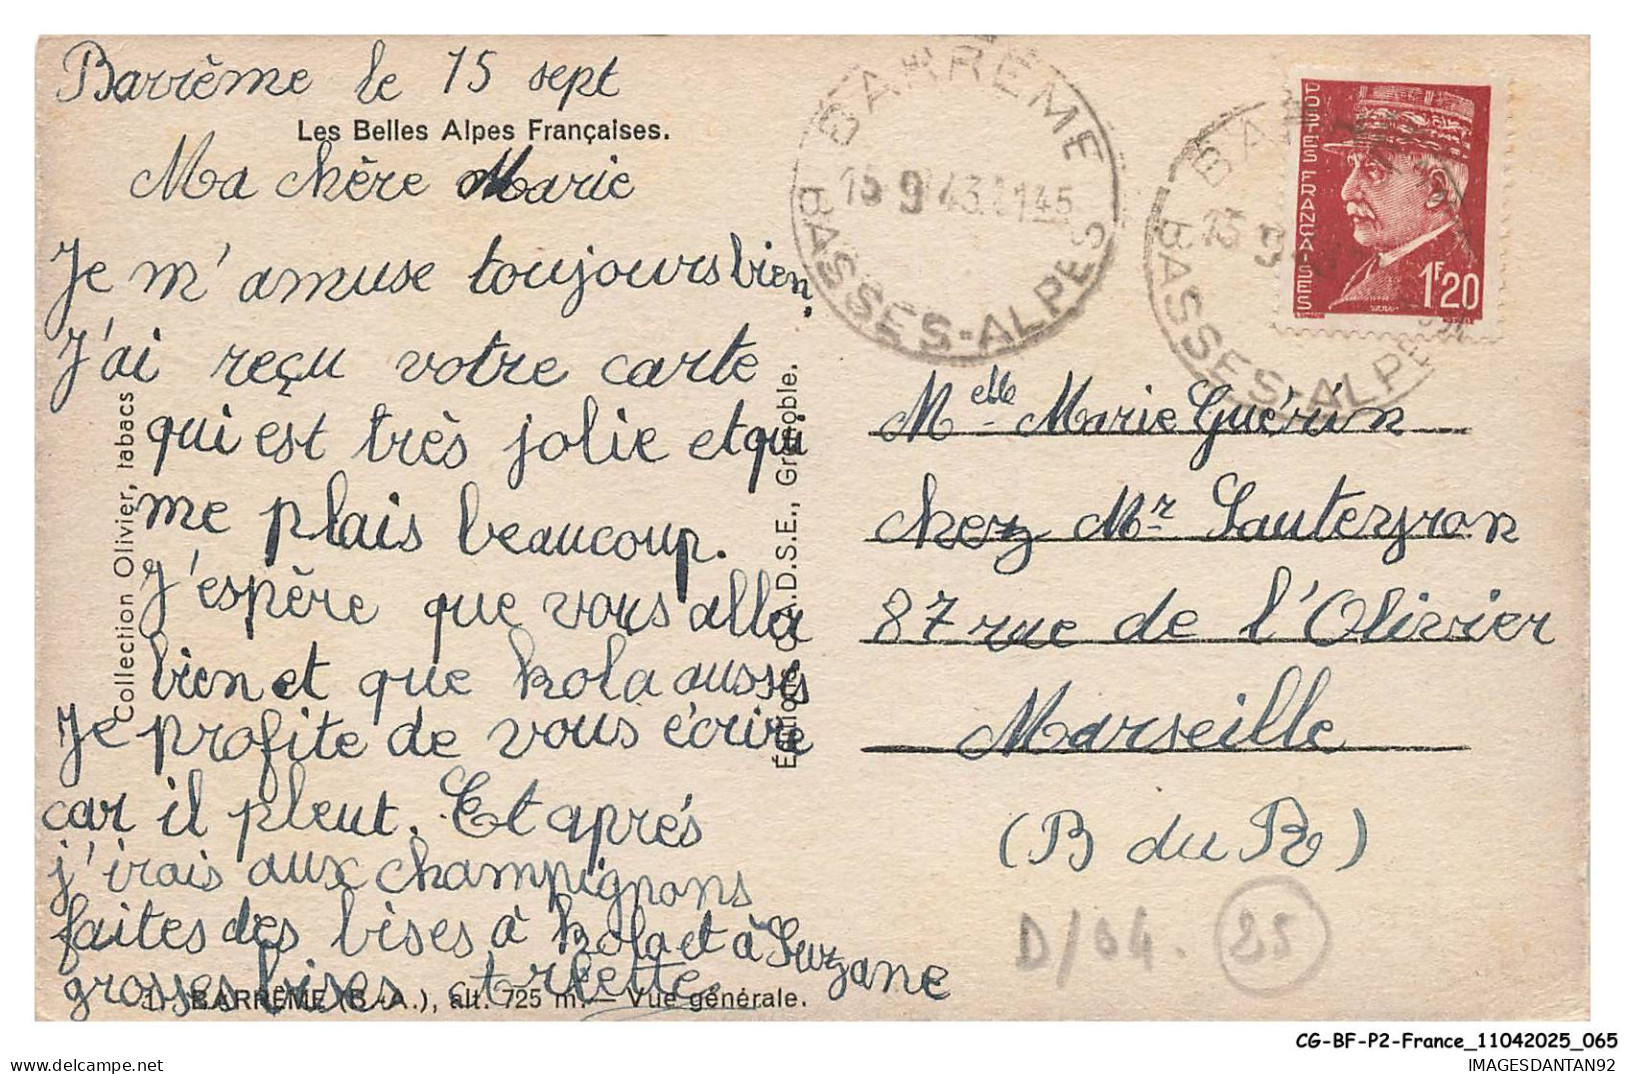 Barrème le 15 sept
Les Belles Alpes Françaises.
Ma chère Marie
Je m'amuse toujours bien.
J'ai reçu votre carte
qui est très jolie et qui
me plais beaucoup.
J'espère que vous allez
bien et que kola aussi
Je profite de vous écrire
car il pleut. Et après
j'irais aux champignons
faites des bises à kola et à Suzane
grosses bises Arlette.
1. - BARRÊME (B.-A.), alt. 725 m. - Vue générale.
Collection Olivier, tabacs
Éditions C.A.D.S.E., Grenoble.
BARRÊME
15 9 43 1145
BASSES-ALPES
BARRÊME
15 9 43
BASSES-ALPES
POSTES FRANÇAISES
1F20
Melle Marie Guérin
chez Mr Sauteyron
87 rue de l'Olivier
Marseille
(B du R)
D/04. 25
CG-BF-P2-France_11042025_065
delcampe.net
IMAGESDANTAN92